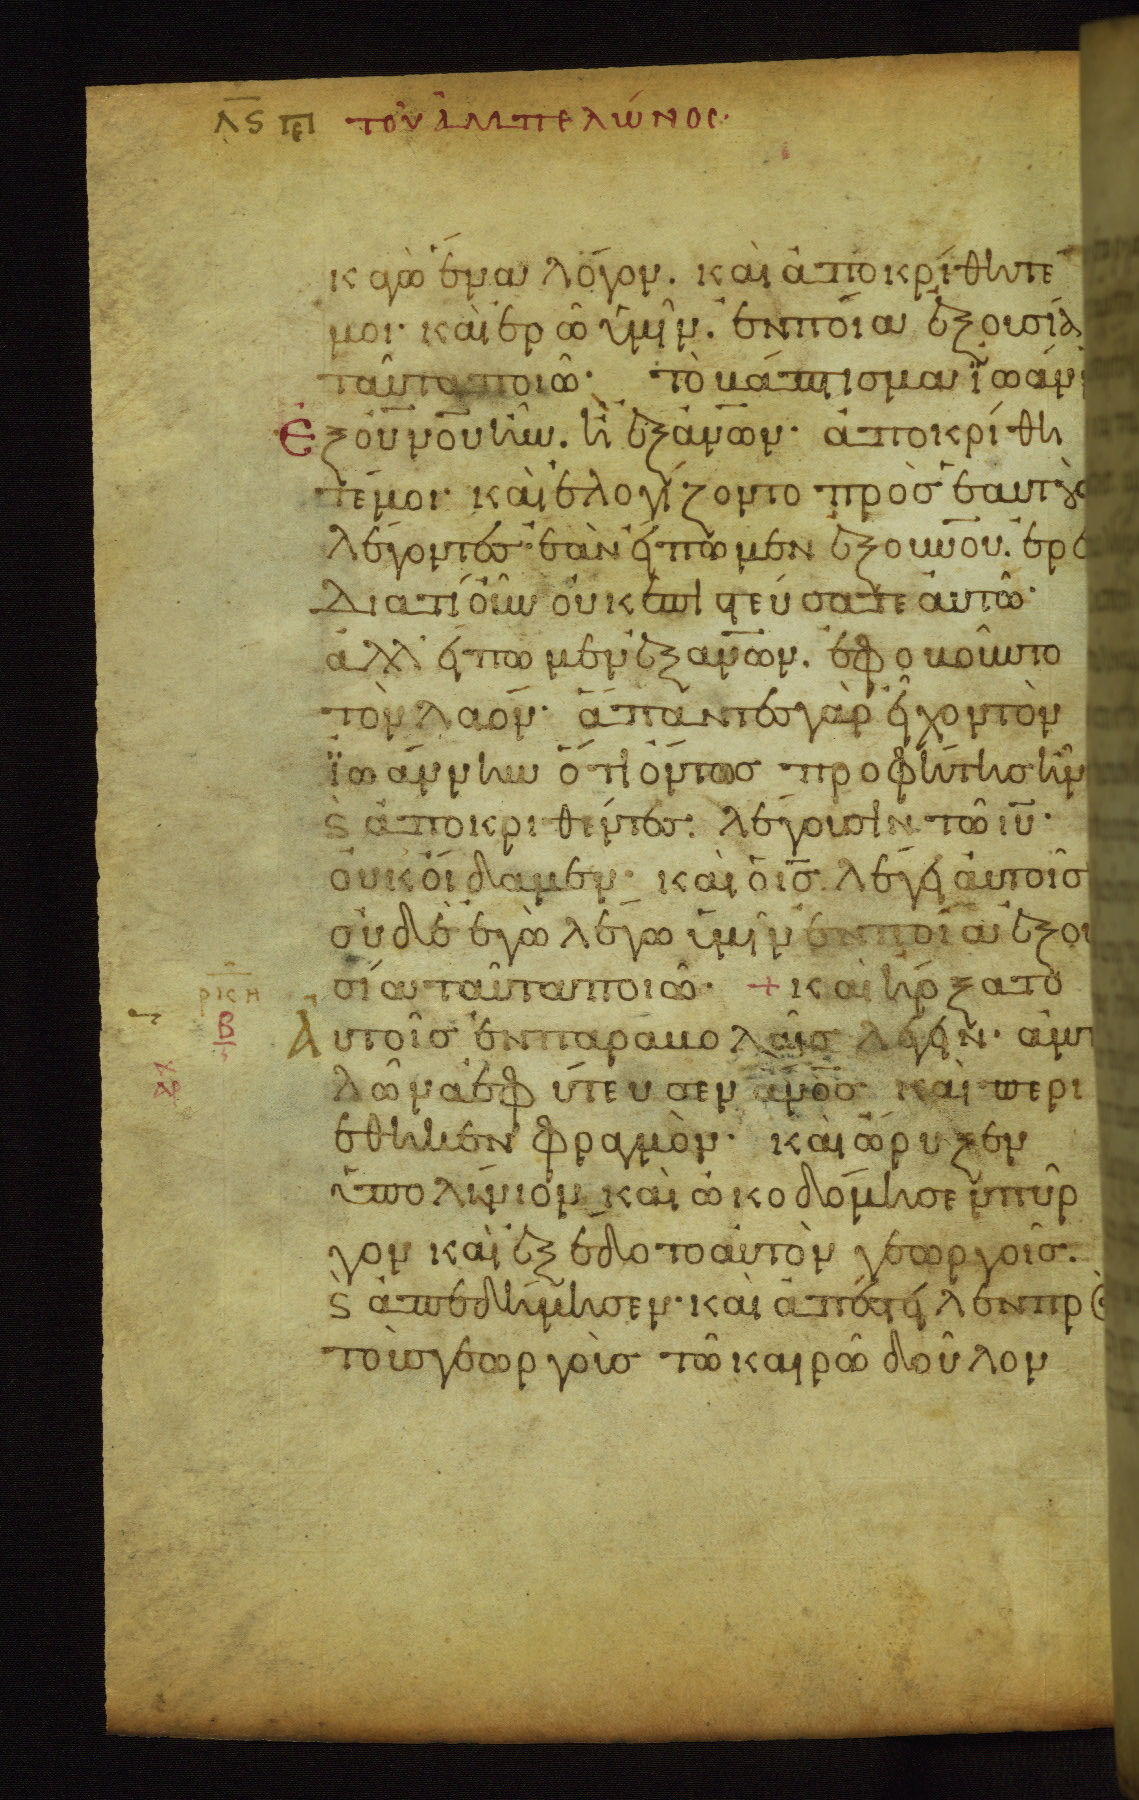 Λϛ πε τοῦ ἀμπελῶνος·
κἀγὼ ἕνα λόγον. καὶ ἀποκρίθητέ
μοι· καὶ ἐρῶ ὑμῖν. ἐν ποία ἐξουσία
ταῦτα ποιῶ· τὸ βάπτισμα ϊωάν
Ἐξ οὐνοῦ ἦν. ἢ ἐξ ἀνων· ἀποκρίθη
τέ μοι· καὶ ἐλογίζοντο πρὸς ἑαυτοὺς
λέγοντες· ἐὰν εἴπωμεν ἐξ οὐνοῦ. ἐρεῖ
διατί οὖν οὐκ ἐπιστεύσατε αὐτῶ·
ἀλλ' εἴπωμεν ἐξ ανων. ἐφοβοῦντο
τὸν λαόν· ἅπαντες γὰρ εἶχον τὸν
ϊωάννην ὅτι ὄντως προφήτης ἦν
ϛ ἀποκριθέντες. λέγουσιν τῶ ιυ·
οὐκ οἴδαμεν· καὶ ὁ ις λέγει αὐτοῖς
οὐδὲ ἐγὼ λέγω ὑμῖν ἐν ποία ἐξου
σία ταῦτα ποιῶ· + καὶ ἤρξατο
ρκη
β
Αὐτοῖς ἐν παραβολαῖς λέγειν· ἀμπ
λῶνα ἐφύτευσεν ανος καὶ περι
έθηκεν φραγμὸν· καὶ ὤρυξεν
ὑπολίνιον καὶ ὠκοδόμησεν πῦρ
γον καὶ ἐξέδοτο αὐτὸν γεωργοῖς.
ϛ ἀπεδήμησεν· καὶ ἀπέστειλεν πρὸς
τοὺς γεωργοὺς τῶ καιρῶ δοῦλον